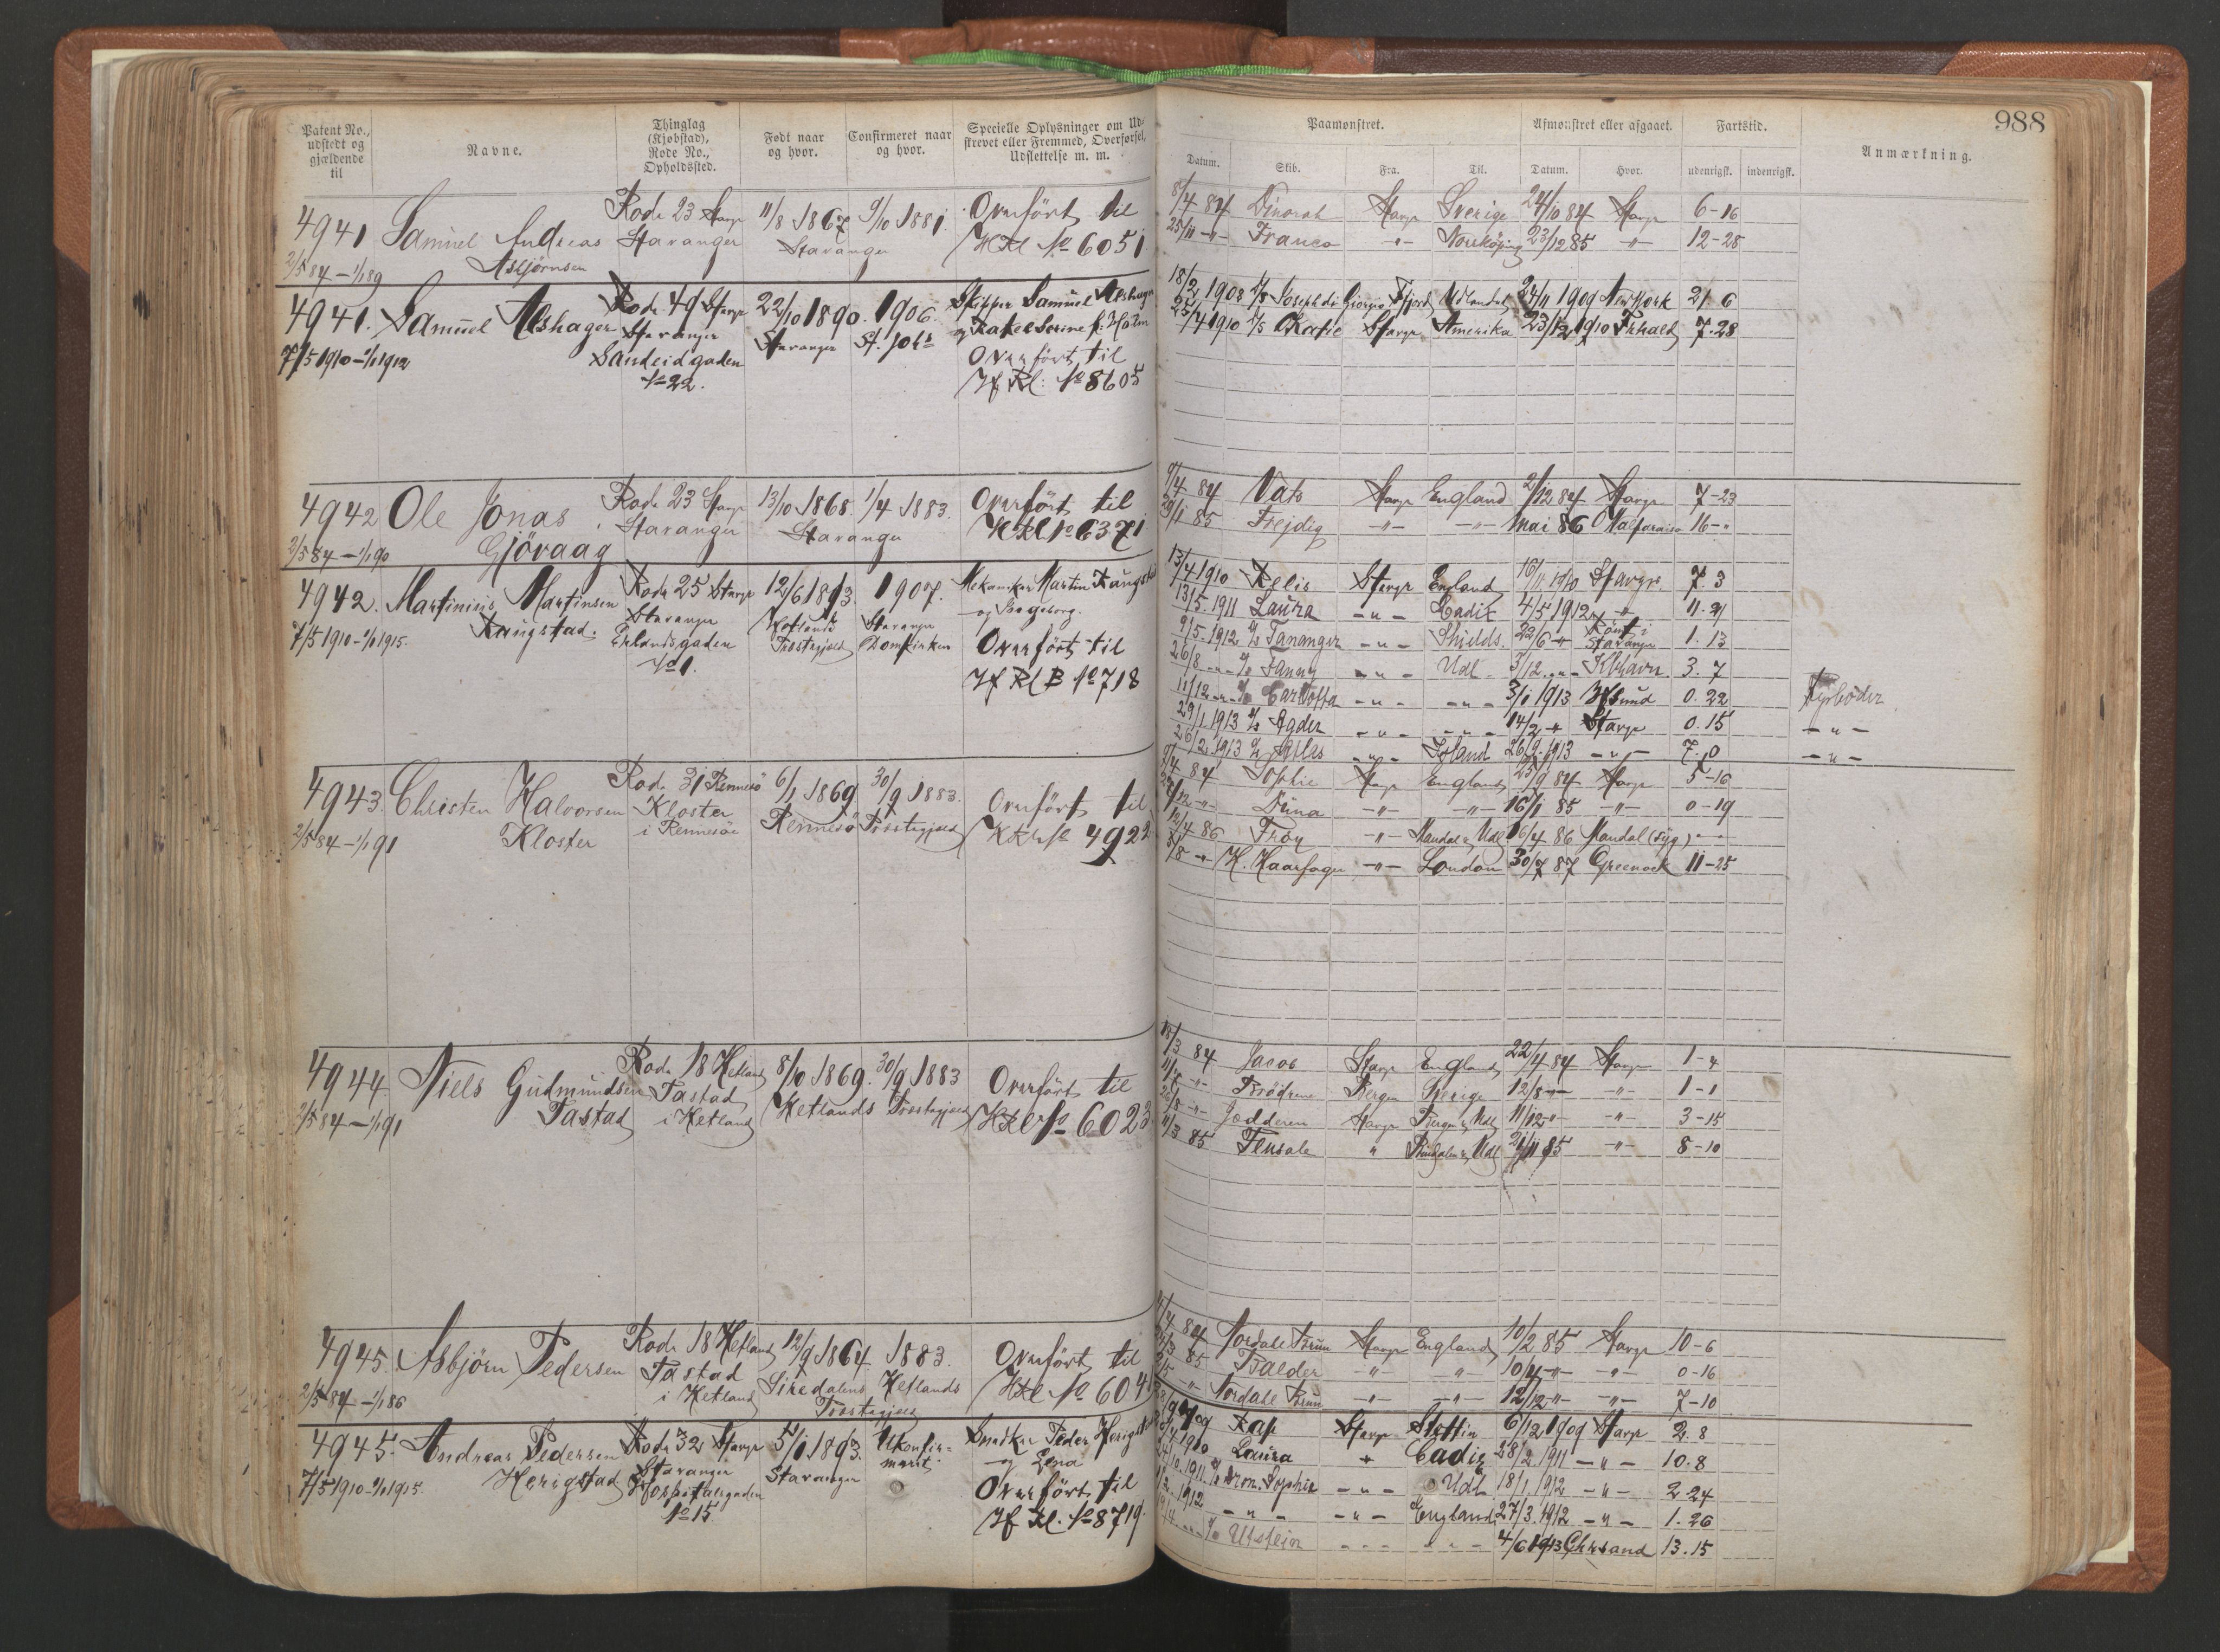 988
Patent No., udstedt og gjældende til
Navne.
Thinglag (Kjøbstad), Rode No., Opholdssted.
Født naar og hvor.
Confirmeret naar og hvor.
Specielle Oplysninger om Udstrevet eller Fremmed, Overførsel, Udslettelse m. m.
Paamønstret.
Datum. Skib. Fra. Til.
Afmønstret eller afgaaet.
Datum. Hvor.
Fartstid.
udenrigsk. indenrigsk.
Anmærkning.
4941 Samuel Andreas Rode 23 Stavgr 11/8 1867 9/10 1881 Overført til
Asbjörnsen Stavanger Stavanger HRl No 6051
2/5 84 - 1/1 89
8/4 84 Dinorah Stavgr Sverige 24/10 84 Stavgr 6-16
25/11 -"- Franco -"- Norköping 23/12 85 -"- 12-28
4941. Samuel Alshager Rode 49 Stavgr 22/10 1890. 1906. Skipper Samuel Alshager
Stavanger Stavanger St. Joh.
7/5 1910 - 1/1 1912 Sandeidgaden
No 22.
Overført til
Hf Rl: No 8605
18/2 1908 Joseph di Giorgio Fjord Udlandet 24/11 1909 New York 21. 6
25/4 1910 Katie Stavgr Amerika 23/12 1910 Frhald 7. 28
4942 Ole Jonas Rode 23 Stavgr 13/10 1868. 1/4 1883. Overført til
Gjövaag Stavanger Stavanger
2/5 84 - 1/1 90
9/4 84 Vats Stavgr England 2/12 84 Stavgr 7-23
85 Frejdig -"- -"- Mai 86 Valparaiso 16-"
4942. Martinius Martinsen Rode 25 Stavgr 12/6 1893. 1907. Mekaniker Martin
Stavanger Hetlands Stavanger og Ingeborg.
7/5 1910 - 1/1 1915. Prestegjeld Domkirken
No 1.
Overført til
Hf Rl B No 718
13/4 1910 England Stavgr. 7. 3
13/5. 1911 Laura -"- Cadix 4/5 1912 -"- 11. 21
9/5. 1912 Tananger -"- Shields. 22/6 -"- Stavanger 1. 13
26/8 -"- Fanny -"- Udl. 3/12. -"- Kbhavn. 3. 7
11/12 -"- Carlotta -"- -"- 3/1 1913 0. 22 Fyrböder
29/1 1913 Agder -"- -"- 14/2 -"- Stavgr 0. 15 -"-
26/2. 1913 Atlas -"- Island 26/9. 1913 -"- 7. 0 -"-
4943. Christen Halvorsen Rode 31 Rennesö 6/1 1869 30/9 1883. Overført til
Kloster Kloster Rennesö Prestegjeld
2/5 84 - 1/1 91 i Rennesöe
HRl No 4922
84 Sophie Stavgr England 25/9 84 Stavgr 5-16
Dina -"- -"- 16/1 85 -"- 0-19
12/4 86 -"- Mandal & Udl 16/4 86 Mandal (syg) -"-
8/8 -"- H. Haarfager -"- London 30/7 87 Greenock 11-25
4944. Niels Gudmundsen Rode 18 Hetland 8/10 1869. 30/9 1883 Overført til
Tastad Tastad Hetlands Prestegjeld
2/5 84 - 1/1 91 i Hetland HRl No 6023
84 Jacob Stavgr England 22/4 84 Stavgr 1-4
Brödrene Bergen Sverige 12/8 -"- -"- 1-1
Jædderen Stavgr Bergen & Udl 11/12 -"- -"- 3-15
11/3 85 " 21/11 85 -"- 8-10
4945. Asbjörn Pedersen Rode 18 Hetland 12/9 1864 1883. Overført til
Tastad Siredalens Hetlands
2/5 84 - 1/1 86 i Hetland Prestegjeld
84 Nordahl Brun Stavgr England 10/2 85 Stavgr 10-6
85 Balder " -"- 10/4 -"- -"- 0-16
Nordahl Brun -"- -"- 12/12 -"- -"- 7-10
4945. Andreas Pedersen Rode 32 Stavgr 5/1 1893. Ukonfirmeret. Snedker Peder Herigstad
Herigstad Stavanger Stavanger og Lena
7/5 1910 - 1/1 1915. Hospitalsgaden
No 15
Overført til
Hf Rl. No 8719.
Rap Stavgr Stettin 6/12 1909 Stavgr 2. 8
1910 Laura " Cadiz 28/2. 1911 -"- 10. 8
1911. Dron. Sophie -"- Udl. 18/1. 1912 -"- 2. 24
1912 -"- -"- England 27/3. 1912 -"- 1. 26
Utstein -"- -"- 4/6 1913 Chrsand 13. 15